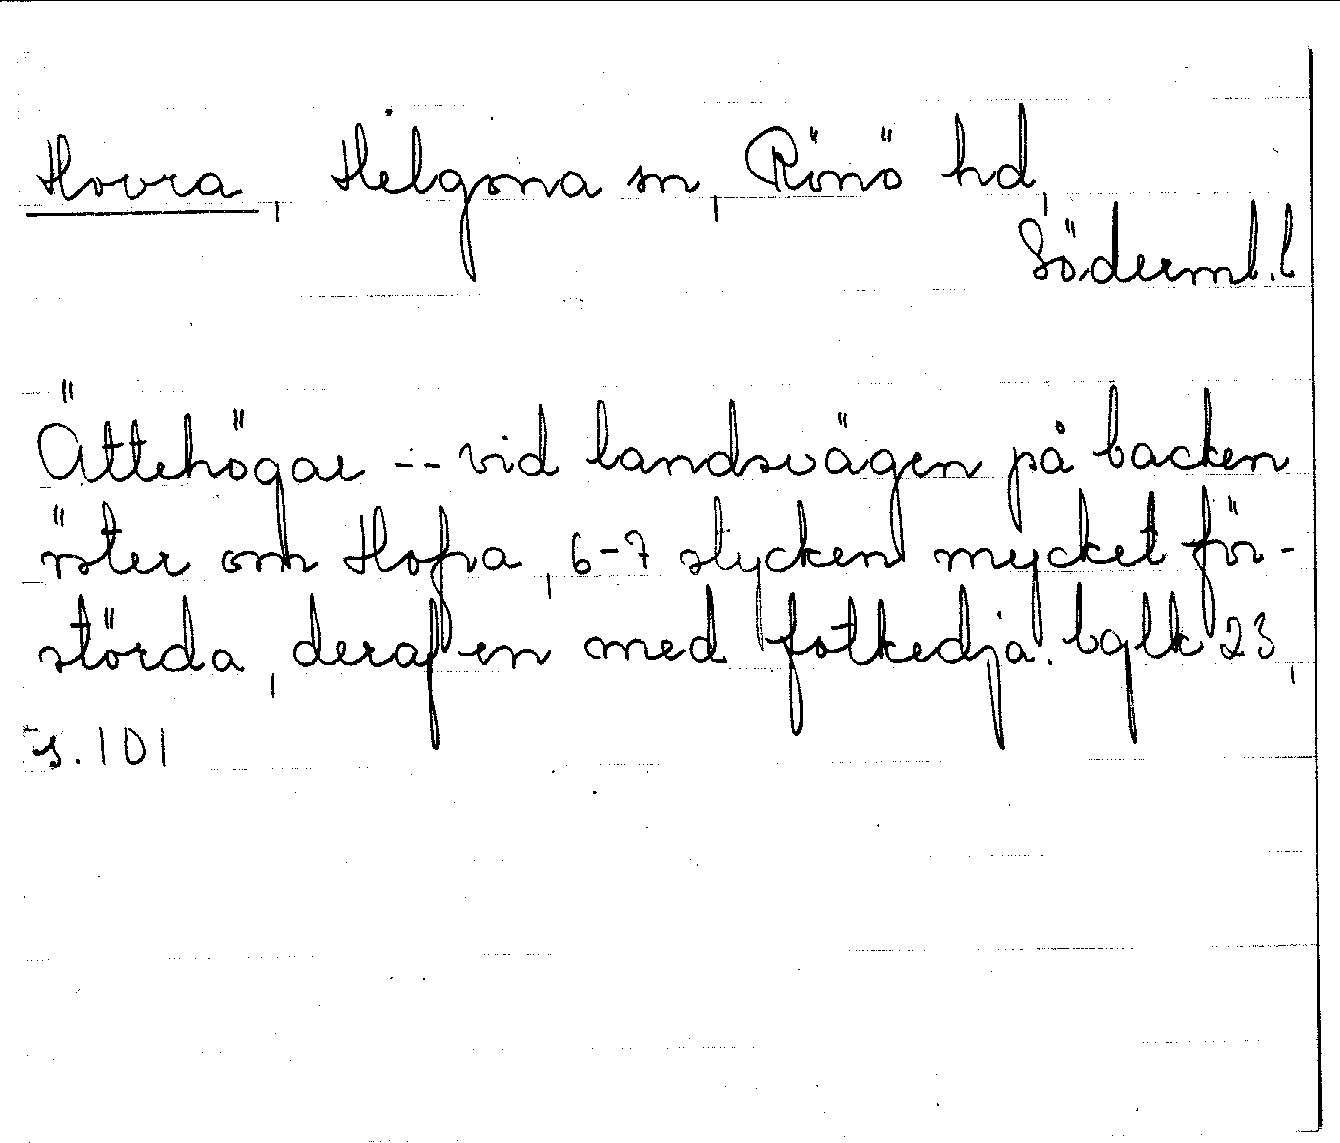 Hovra, Helgona sn, Rönö hd,
Söderml. l
Ättehögar -- vid landsvägen på backen
öster om Hofra, 6-7 stycken mycket för-
störda, deraf en med fotkedja. bglk 23,
s. 101